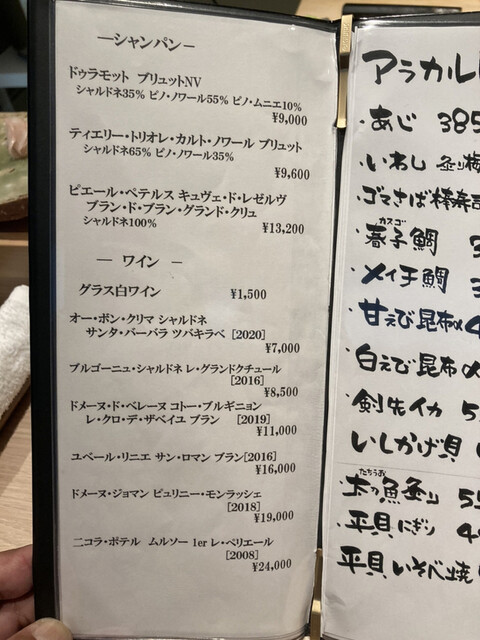 ―シャンパン―
ドゥラモット ブリュットNV
シャルドネ35% ピノ・ノワール55% ピノ・ムニエ10%
¥9,000
ティエリー・トリオレ・カルト・ノワール ブリュット
シャルドネ65% ピノ・ノワール35%
¥9,600
ピエール・ペテルス キュヴェ・ド・レゼルヴ
ブラン・ド・ブラン・グランド・クリュ
シャルドネ100%
¥13,200
― ワイン ―
グラス白ワイン ¥1,500
オー・ボン・クリマ シャルドネ
サンタ・バーバラ ツバキラベ [2020]
¥7,000
ブルゴーニュ・シャルドネ レ・グランドクチュール
[2016]
¥8,500
ドメーヌ・ド・ベレーヌ コトー・ブルギニョン
レ・クロ・デ・ザベイユ ブラン [2019]
¥11,000
ユベール・リニエ サン・ロマン ブラン[2016]
¥16,000
ドメーヌ・ジョマン ピュリニー・モンラッシェ
[2018]
¥19,000
ニコラ・ポテル ムルソー 1er レ・ペリエール
[2008]
¥24,000
アラカル
・あじ 385
・いわし 炙り梅
・ゴマさば棒寿司
カスゴ
・春子鯛
・メイチ鯛
・甘えび昆布〆
・白えび昆布〆
・剣先イカ
いしかげ貝
たちうお
・太刀魚炙り
・平貝にぎり
平貝いそべ焼